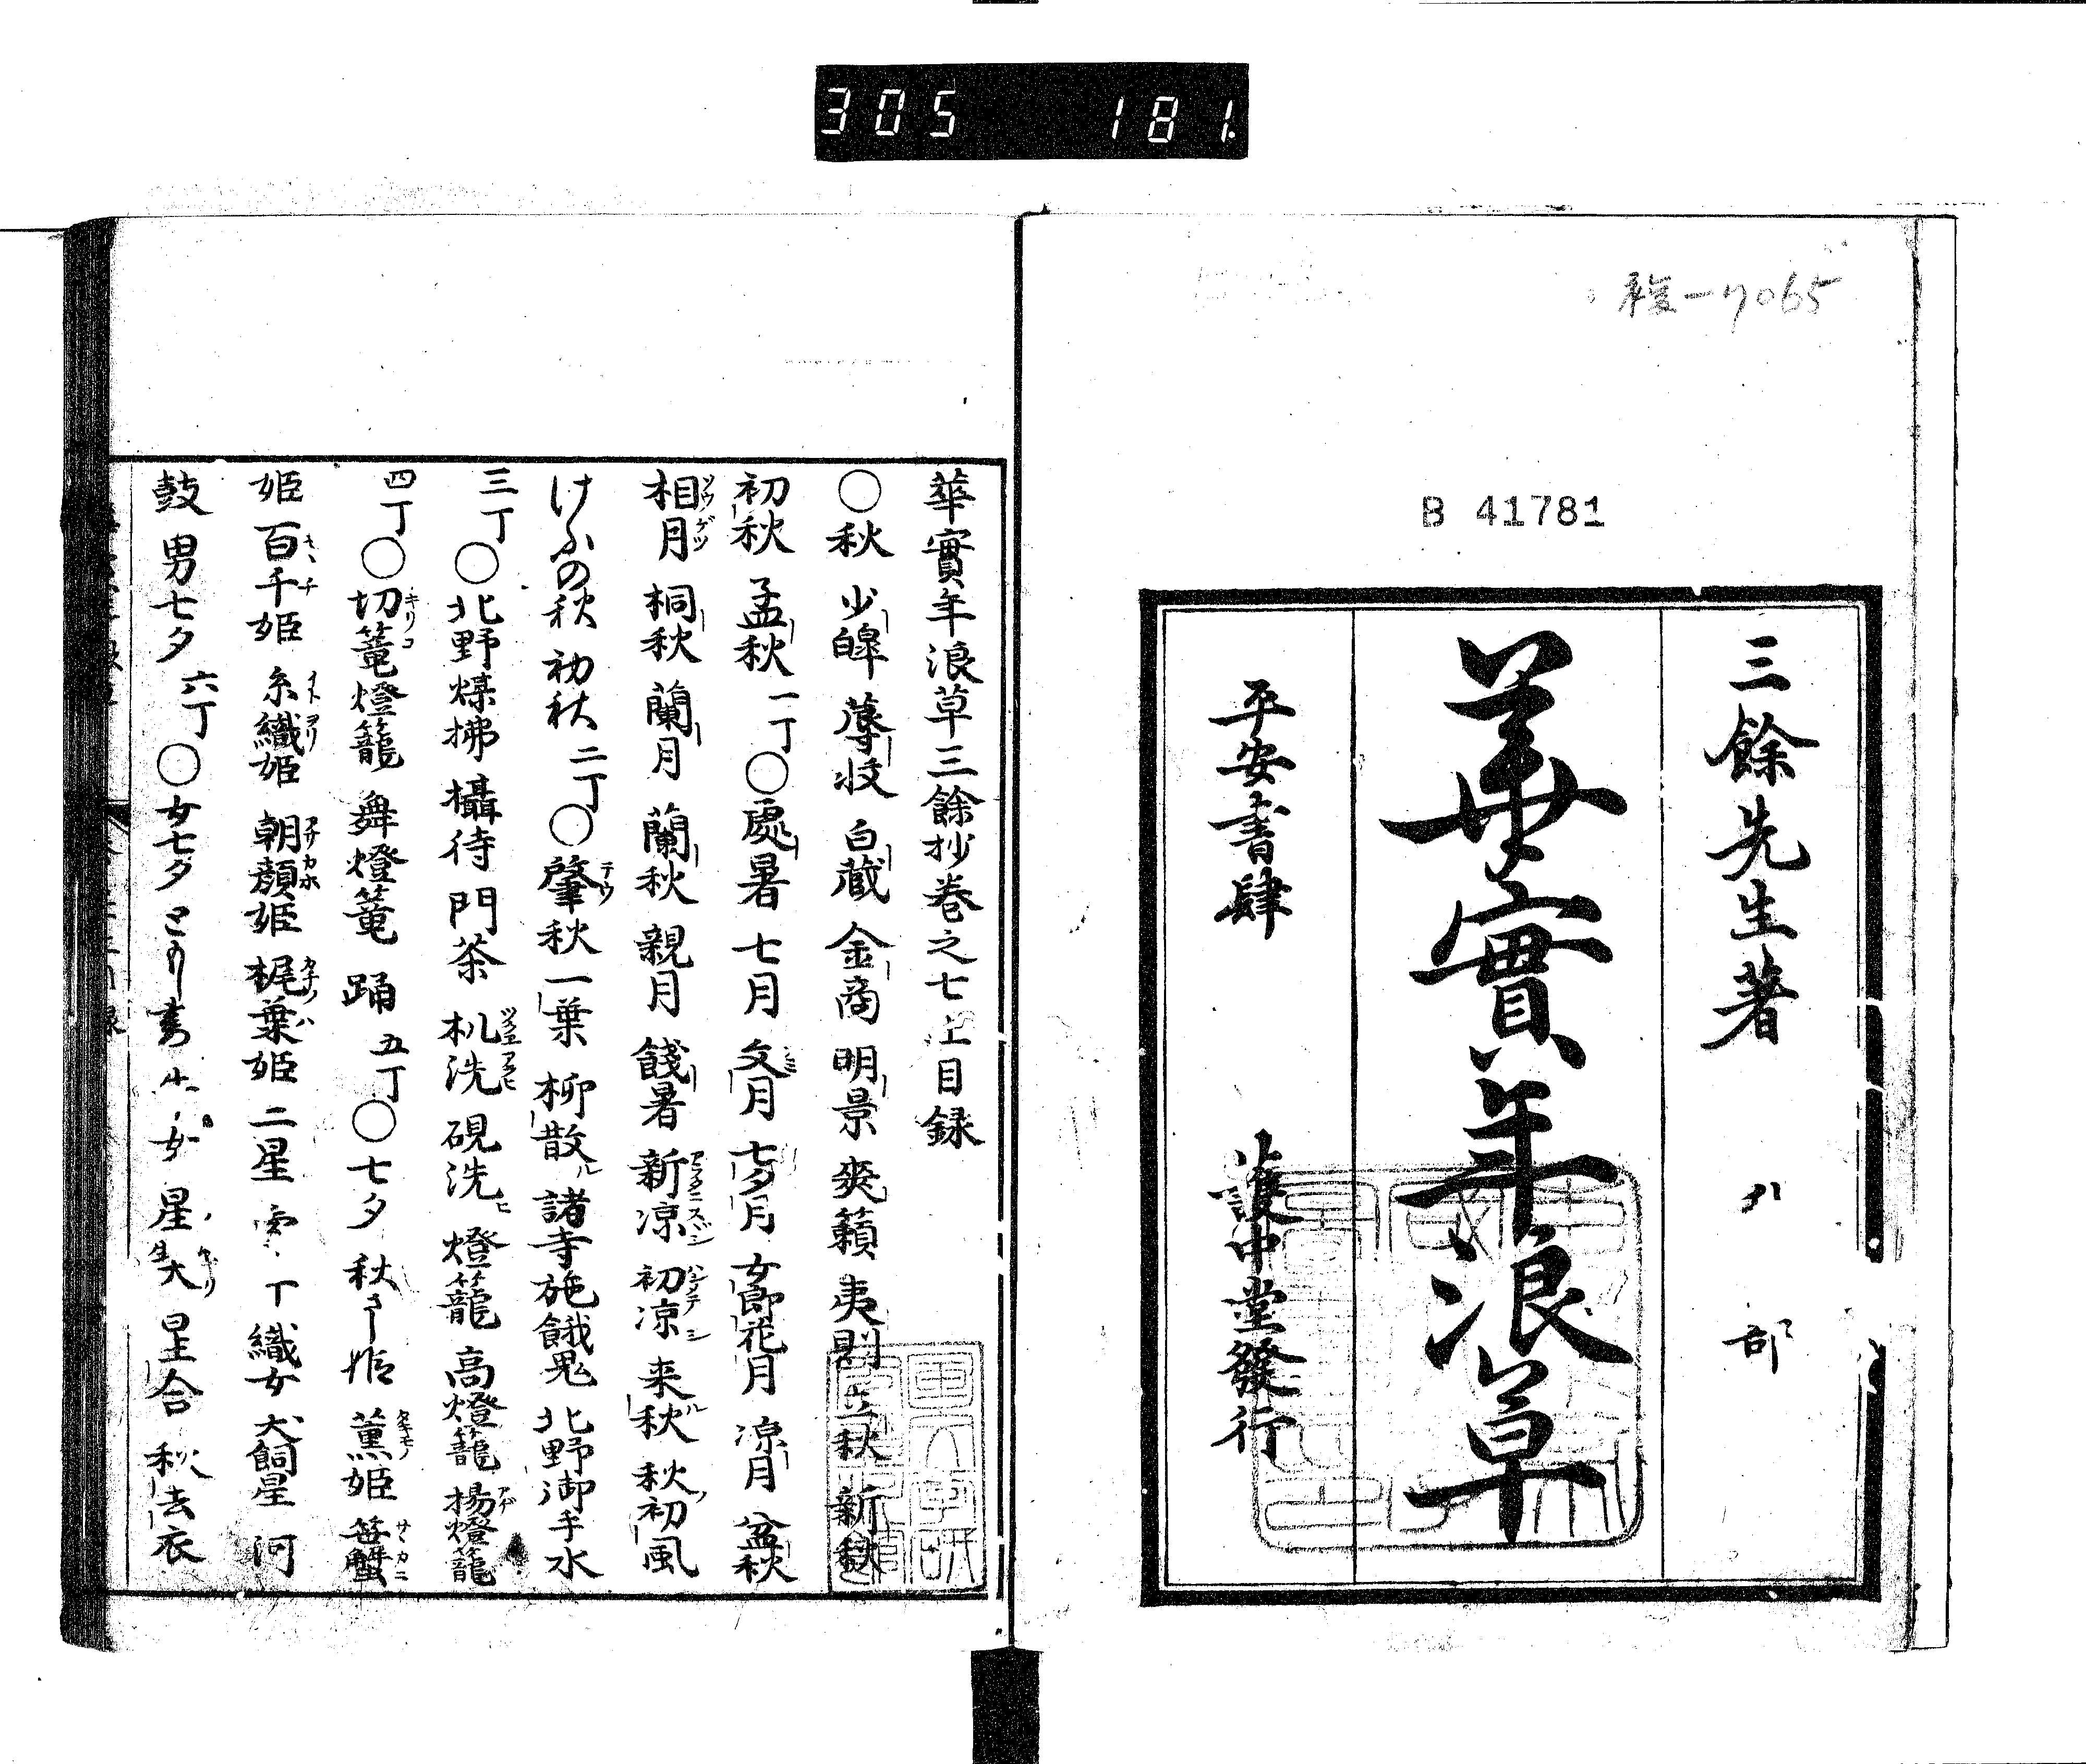 305 181
B 41781
三餘先生著 八部
華實年浪草
平安書肆 護中堂發行
華實年浪草三餘抄巻之七上目録
○秋 少皞 蓐收 白蔵 金商 明景 爽籟 夷則 立秋 新秋
初秋 孟秋 一丁○處暑 七月 文月 七夕月 女郎花月 凉月 盆秋
相月 桐秋 蘭月 蘭秋 親月 餞暑 新凉 初凉 来秋 秋初風
けふの秋 初秋 二丁○肇秋 一葉 柳散ル 諸寺施餓鬼 北野御手水
三丁○北野煤拂 攝待 門茶 机洗 硯洗ヒ 燈籠 高燈籠 揚燈籠
四丁○切篭燈籠 舞燈篭 踊 五丁○七夕 秋さし姫 薫姫 笹蟹
姫 百千姫 糸織姫 朝顔姫 梶葉姫 二星 織女 犬飼星 河
鼓 男七夕 六丁○女七夕 星 星合 秋去衣